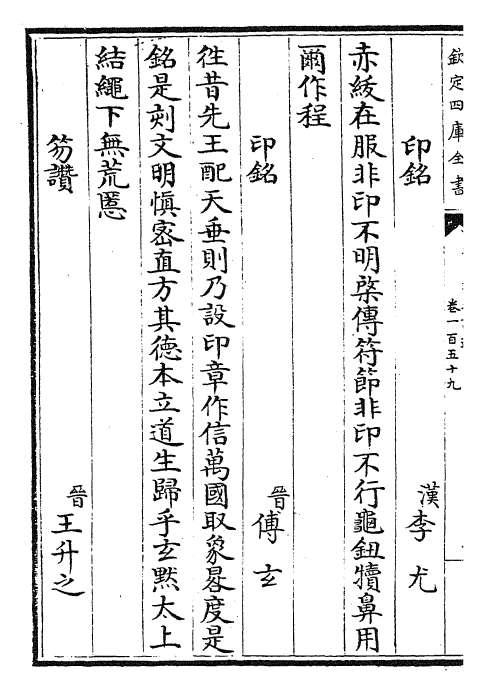 欽定四庫全書
卷一百五十九
印銘　漢李尤
赤紱在服非印不明棨傳符節非印不行龜鈕犢鼻用
爾作程
印銘　晉傅玄
徃昔先王配天垂則乃設印章作信萬國取象晷度是
銘是刻文明慎宻直方其徳本立道生歸乎玄黙太上
結繩下無荒慝
笏讚　晉王升之